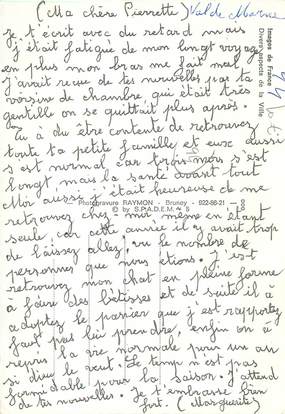 (Ma chère Pierrette) Val de Marne
Je t'écrit avec du retard mais
j était fatigué de mon lingt voyage
en plus mon bras me fait mal
J'avait reçue de tes nouvelles par ta
voisine de chambre, qui était très
gentille on se quittait plus après.
Tu à dû être contente de retrouvez
toute ta petite famille et eux aussi
s est normal car trois mois s'est
longt mais la santé avant tout
Moi aussi j'était heureuse de me
retrouvez chez-moi même en étant
seule car cette année il y avait trop
de laissez allez, vu le nombre de
personnes que nous étions. J'est
retrouvez mon chat en pleine forme
à faire des bêtisses et de suite il à
adoptez le panier que j'est rapportez
faut pas lui prendre, enfin on à
repris la vie normale pour un an
si dieu le veut. Le temp n'est pas
formidable pour la saison. J'attend
de tes nouvelles. Je t'embrasse bien
fort. (Marguerite)
Images de France
Divers aspects de la Ville
94
Photogravure RAYMON - Brunoy - 922-86-21
© by S.P.A.D.E.M.